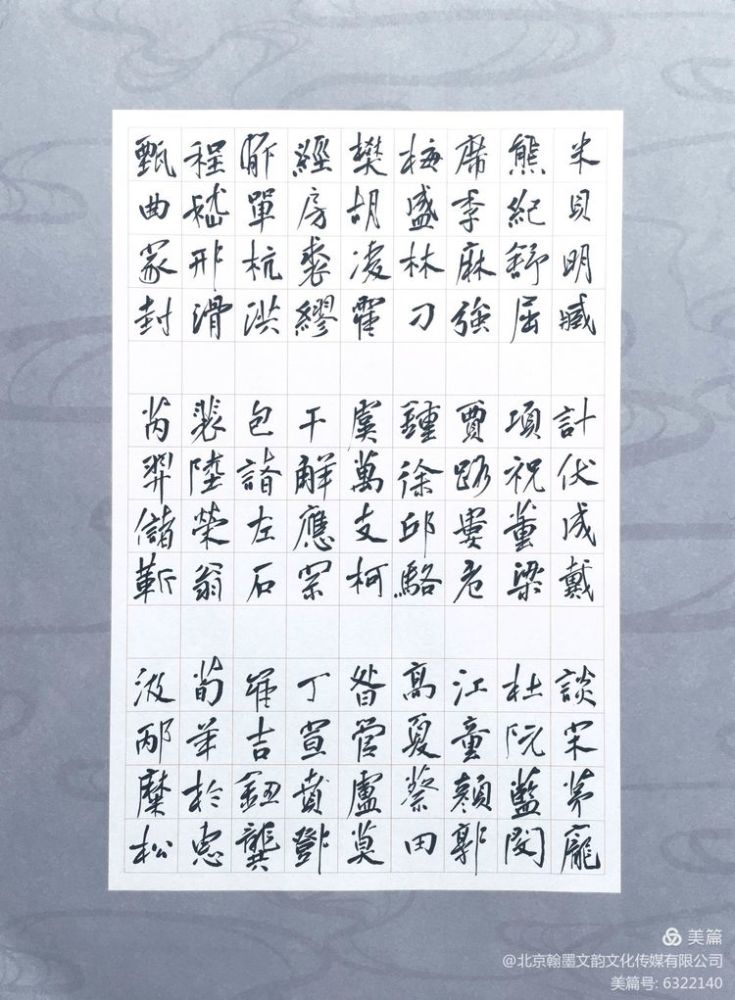 米貝明臧 計伏成戴 談宋茅龐
熊紀舒屈 項祝董梁 杜阮藍閔
席季麻強 賈路婁危 江童顏郭
梅盛林刁 鍾徐邱駱 高夏蔡田
樊胡凌霍 虞萬支柯 昝管盧莫
經房裘繆 干解應宗 丁宣賁鄧
郁單杭洪 包諸左石 崔吉鈕龔
程嵇邢滑 裴陸榮翁 荀羊於惠
甄曲家封 芮羿儲靳 汲邴糜松
美篇
@北京翰墨文韵文化传媒有限公司
美篇号: 6322140